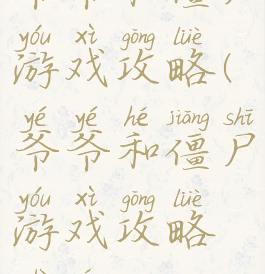 yóu xì gōng lüè
游戏攻略(
yé yé hé jiāng shī
爷爷和僵尸
yóu xì gōng lüè
游戏攻略